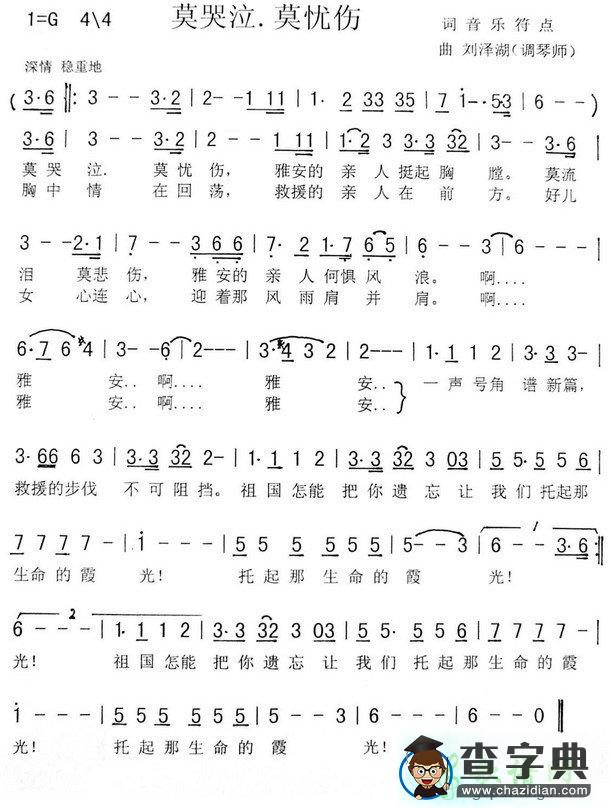 1=G 4\4 莫哭泣.莫忧伤 词 音 乐 符 点
曲 刘泽湖(调琴师)
深情 稳重地
( 3·6 ‖: 3 - - 3·2 | 2 - - 1 11 | 1· 2 33 35 | 7 i·-53 )
3·6 | 3 - - 3·2 | 2 - - 1 11 | 1·2 3 3·3 32 | 3 - - 3·6 |
莫哭泣. 莫忧伤, 雅安的亲人挺起胸膛。莫流
胸中情 在回荡, 救援的亲人在前方。好儿
3 - - 2·1 | 7 - - 3 6 6 | 7· 2 1·7 6 5 | 6 - - 3 | 3 - - - |
泪 莫悲伤, 雅安的亲人何惧风浪。啊....
女 心连心, 迎着那风雨肩并肩。啊....
6·7 6 #4 | 3 - - 6 | 2 - - - | 3·#4 3 2 | 2 - - - | 1·1 1 2 | 3·3 3 - |
雅 安..啊.... 雅 安.. 一声号角谱新篇,
雅 安..啊.... 雅 安..
3·66 6 3 | 3·3 32 2 - | 1·1 1 2 | 3·3 32 3 03 | 5 5·5 5 | 5 5 5 6 |
救援的步伐 不可阻挡。祖国怎能把你遗忘让我们托起那
7 7 7 7 - | i - - - | 5 5 5 5 5 5 | 5 - - 3 | 6 - - 3·6 :‖
生命的霞 光! 托起那生命的霞 光!
6 - - - | 1·1 1 2 | 3·3 32 3 03 | 5 5·5 5 | 5 5 5 6 | 7 7 7 7 - |
光! 祖国怎能把你遗忘让我们托起那生命的霞
i - - - | 5 5 5 5 5 5 | 7 - - 3 | 6 - - - | 6 - - 0 ‖
光! 托起那生命的霞 光!
查字典
www.chazidian.com